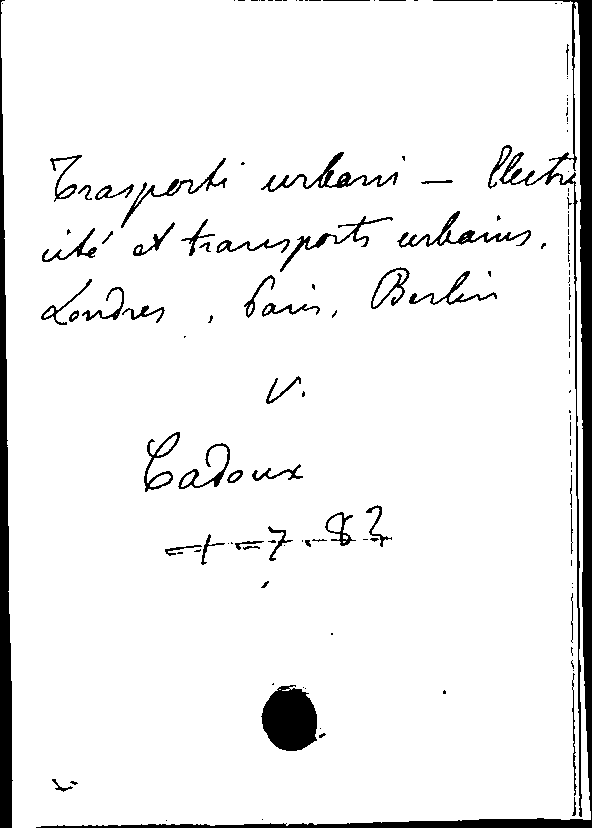 Trasporti urbani — Electri
cité et transports urbains.
Londres, Paris, Berlin
V.
Cadoux